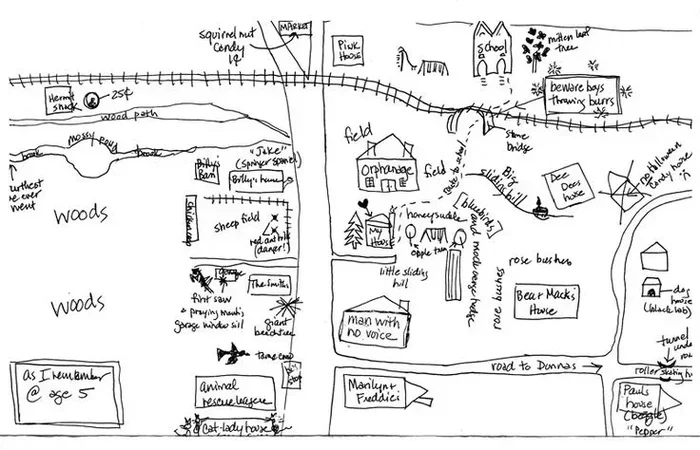 MARKET
squirrel nut
Candy
1¢
Pink
House
school
mitten leaf
tree
beware boys
throwing burrs
Hermit
shack
25¢
wood path
stone
bridge
mossy pond
brook
"Jake"
(springer spaniel)
Billy's
Barn
Billy's house
field
Orphanage
field
Big
sliding hill
Dee
Dees
house
no halloween
candy house
urthest
e ever
went
woods
sheep field
red ant hill
(danger!)
My
House
honeysuckle
bluebirds
apple tree
little sliding
hill
rose bushes
Bear Mack's
House
dog
house
(black lab)
woods
garage
The Smiths
first saw
a praying mantis
garage window sill
giant
beech tree
man with
no voice
tame crow
road to Donnas
tunnel
under
roller skating h
as I remember
@ age 5
animal
rescue league
cat-lady house
Marilyn +
Freddie
Pauls
house
(beagle)
"Pepper"